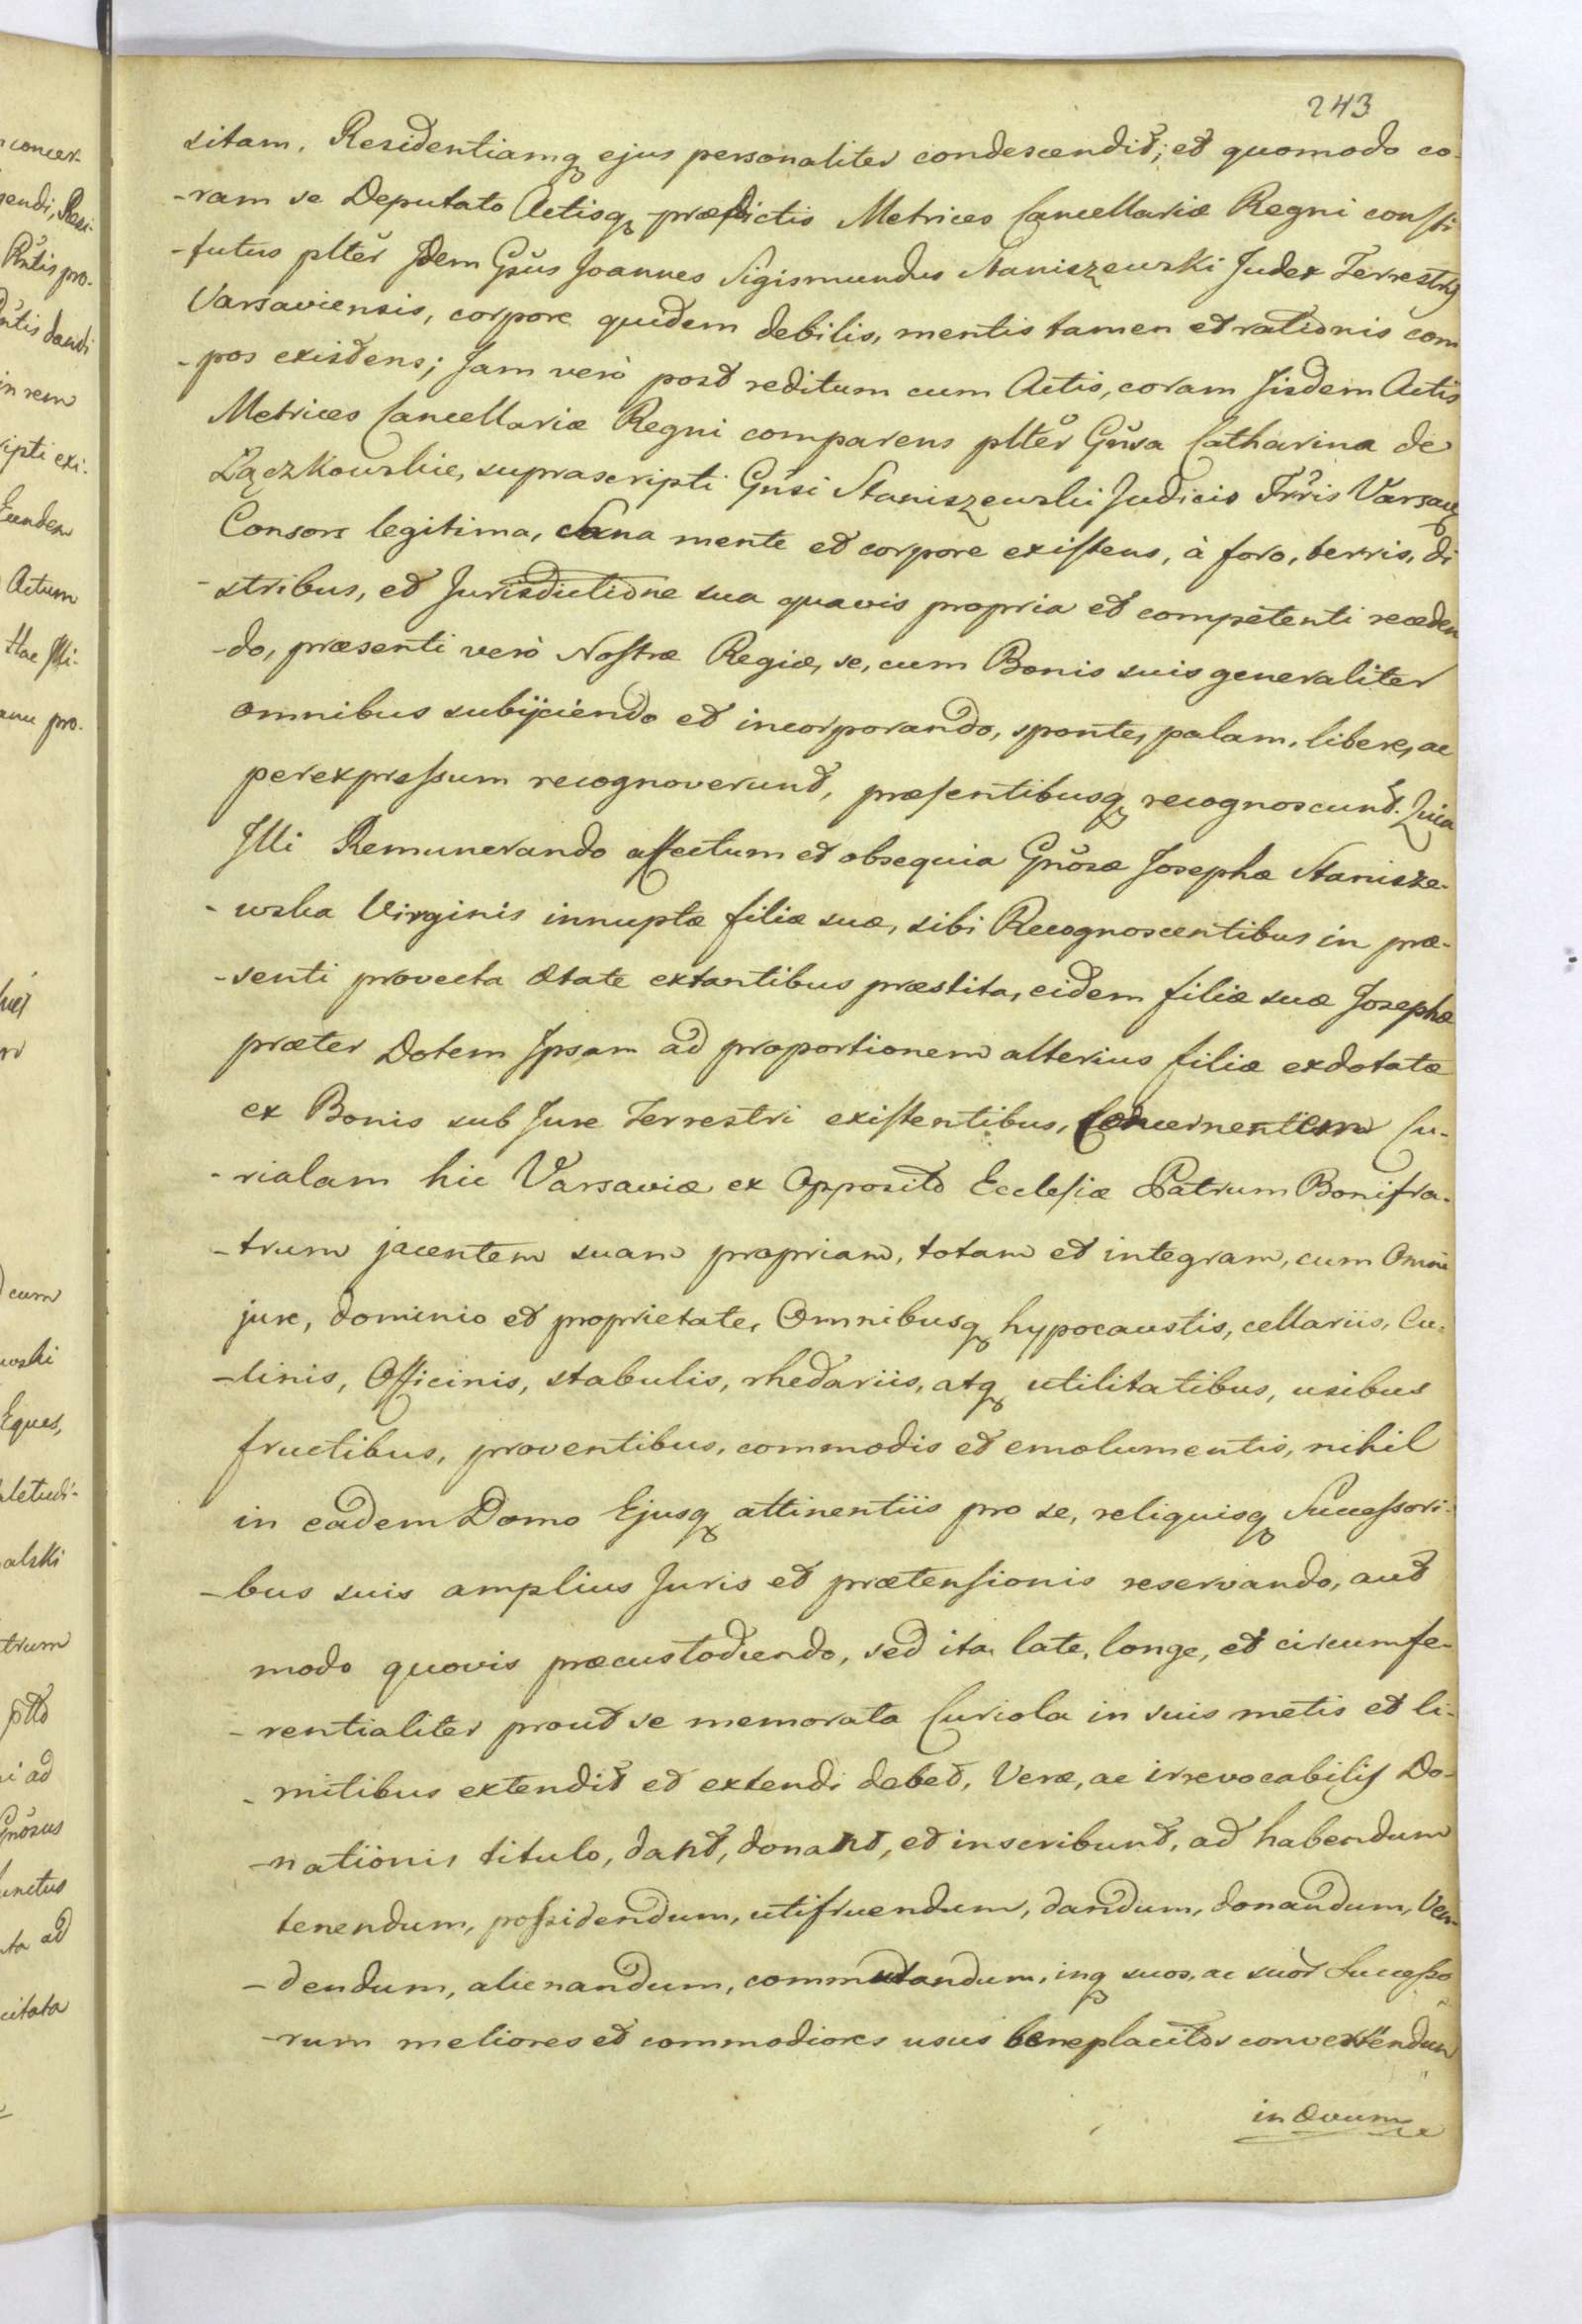 243
sitam. Residentiamq̃ ejus personaliter condescendit; et quomodo co-
-ram se Deputato Actisq̃ prædictis Metrices Cancellariæ Regni consti
-tutus pltěr Jdem Gňsus Joannes Sigismundus Staniszewski Judex Terrestris
Varsaviensis, corpore quidem debilis, mentis tamen et rationis com
-pos existens; Jam verò post reditum cum Actis, coram Jisdem Actis
Metrices Cancellariæ Regni comparens pltěr Gňsa Catharina de
Łączkowskie, suprascripti Gňsi Staniszewski Judicis Trřis Varsav
Consors legitima, sana mente et corpore existens, à foro, terris, di
-stribus, et Jurisdictione sua quavis propria et competenti receden
-do, præsenti verò Nostræ Regiæ, se, cum Bonis suis generaliter
omnibus subijciendo et incorporando, sponte, palam, libere, ac
perexpressum recognoverunt, præsentibusq̃ recognoscunt. Quia
Jlli Remunerando affectum et obsequia Gňosæ Josephæ Stanisze-
-wska Virginis innuptæ filiæ suæ, sibi Recognoscentibus in præ-
-senti provecta ætate extantibus præstita, eidem filiæ suæ Josephæ
præter Dotem Jpsam ad proportionem alterius filiæ exdotatæ
ex Bonis sub Jure Terrestri existentibus, Concernentem Cu-
-rialam hic Varsaviæ ex Opposito Ecclesiæ Patrum Bonifra-
-trum jacentem suam propriam, totam et integram, cum Omni
jure, dominio et proprietate, Omnibusq̃ hypocaustis, cellariis, Cu-
-linis, Officinis, stabulis, rhedariis, atq̃ utilitatibus, usibus
fructibus, proventibus, commodis et emolumentis, nihil
in eadem Domo Ejusq̃ attinentiis pro se, reliquisq̃ Successori-
-bus suis amplius Juris et prætensionis reservando, aut
modo quovis præcustodiendo, sed ita late, longe, et circumfe-
-rentialiter prout se memorata Curiola in suis metis et li-
-mitibus extendit et extendi debet, Veræ, ac irrevocabilis Do-
-nationis titulo, dant, donant, et inscribunt, ad habendum
tenendum, possidendum, utifruendum, dandum, donandum, Ven-
-dendum, alienandum, commutandum, inq̃ suos, ac suor̃ Successo
-rum meliores et commodiores usus beneplacitos convertendum
in ævum